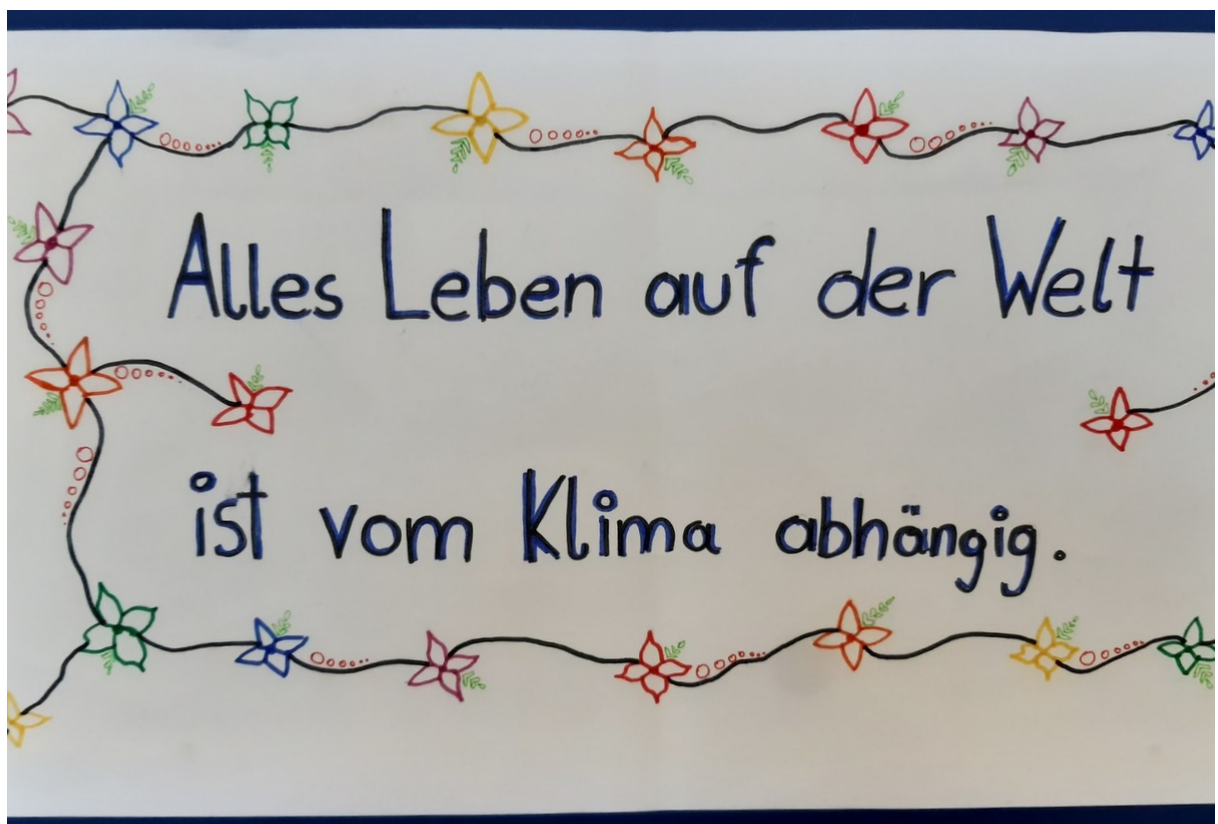 Alles Leben auf der Welt
ist vom Klima abhängig.